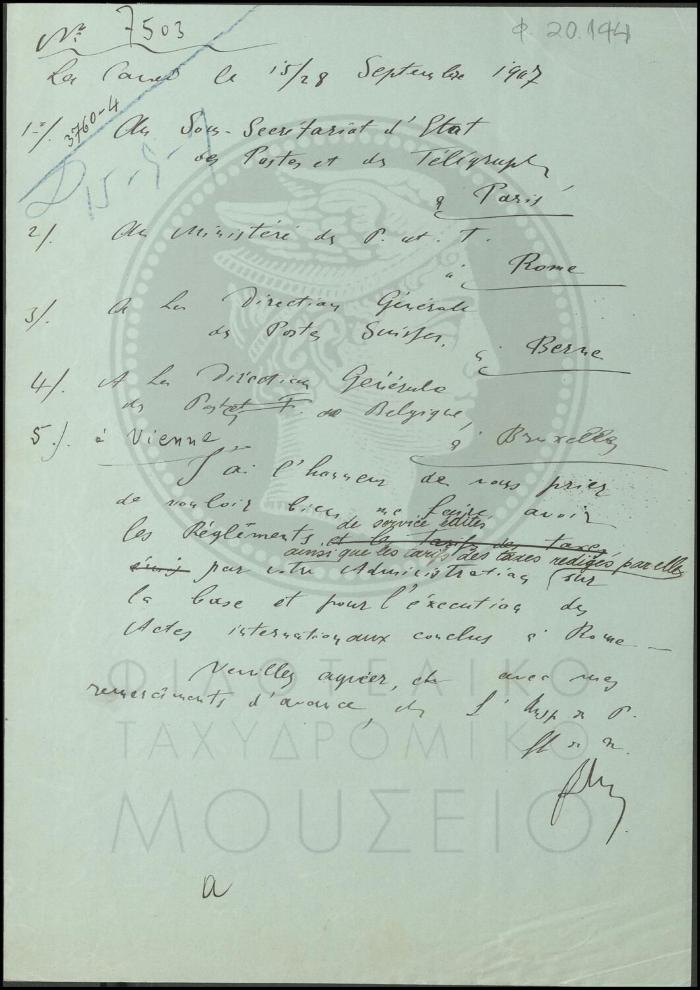 No 7503
Φ. 20.194
La Canée le 15/28 Septembre 1907
3760-4
15-9-7
1o/. Au Sous-Secrétariat d'Etat
des Postes et des Télégraphes
à Paris
2/. Au Ministère des P. et T.
à Rome
3/. A La Direction Générale
des Postes Suisses,
à Berne
4/. A La Direction Générale
des Postes et T. de Belgique,
à Bruxelles
5/. à Vienne
J'ai l'honneur de vous prier
de vouloir bien me faire avoir
de service édités
les Règlements et les tarifs des taxes
ainsi que les tarifs des taxes rédigés par elle
par votre Administration sur
la base et pour l'éxécution des
Actes internationaux conclus à Rome
Veuillez agréer, etc avec mes
remercîments d'avance, L'Insp P.
ΦΙΛΟΤΕΛΙΚΟ
ΤΑΧΥΔΡΟΜΙΚΟ
ΜΟΥΣΕΙΟ
a